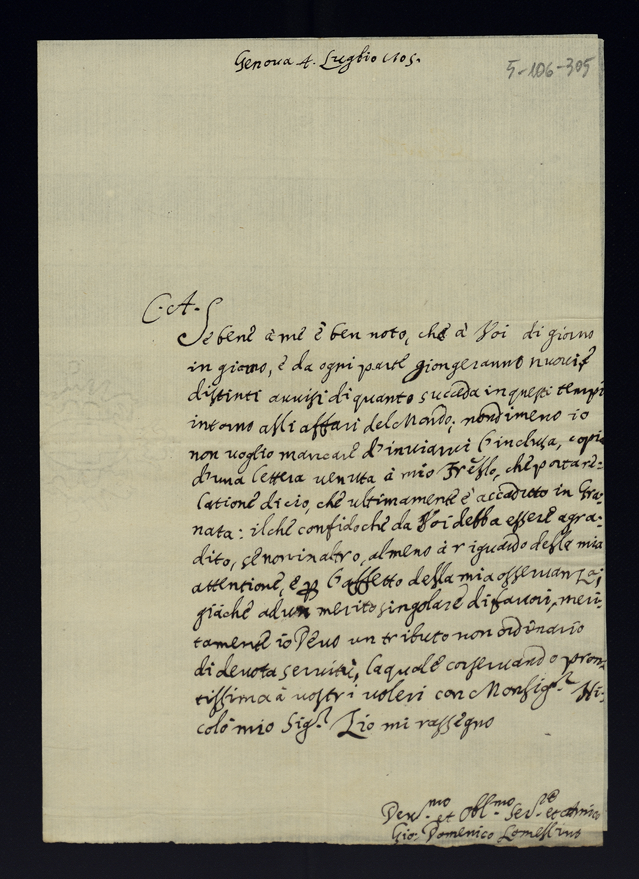 Genova 4. Luglio 1705.
5-106-305
C. A.
Se bene à me è ben noto, che à Voi di giorno
in giorno, è da ogni parte giongeranno nuovi, è
distinti avvisi di quanto succeda in questi tempi
intorno alli affari del Mondo; nondimeno io
non voglio mancare d'inviarvi l'inclusa, copia
d'una lettera venuta à mio Frẽllo, che porta re=
latione di ciò, che ultimamente è accaduto in Gra=
nata: il che confido che da Voi debba essere agra=
dito, se non in altro, almeno à riguardo della mia
attentione, è ꝑ l'affetto della mia osservanza;
giache ad un merito singolare di favori, meri=
tamente io Devo un tributo non ordinario
di devota servitù, la quale conservando pron=
tissima à vostri voleri con Monsig.r Ni=
colò mio Sig.r Zio mi rassegno
Dev.mo et Obl.mo Ser.re et Amico
Gio: Domenico Lomellino